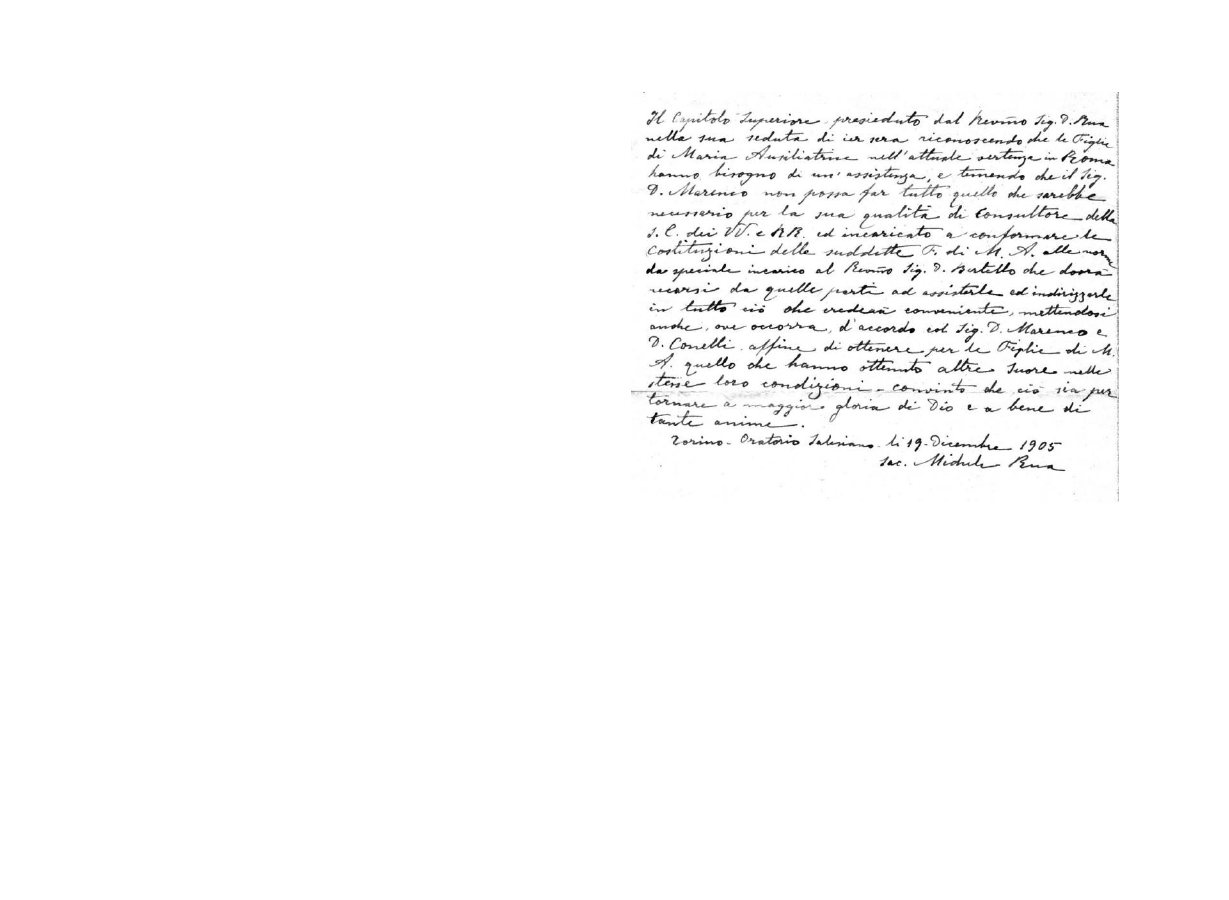 Il Capitolo Superiore presieduto dal Revmo Sig. D. Rua
nella sua seduta di ier sera riconoscendo che le Figlie
di Maria Ausiliatrice nell'attuale vertenza in Roma
hanno bisogno di un'assistenza, e temendo che il Sig.
D. Marenco non possa far tutto quello che sarebbe
necessario per la sua qualità di Consultore della
S. C. dei VV. e RR. ed incaricato a conformare le
Costituzioni delle suddette F. di M. A. alle norme
da speciale incarico al Revmo Sig. D. Bertello che dovrà
recarsi da quelle parti ad assisterle ed indirizzarle
in tutto ciò che crederà conveniente, mettendosi
anche, ove occorra, d'accordo col Sig. D. Marenco e
D. Conelli affine di ottenere per le Figlie di M.
A. quello che hanno ottenuto altre Suore nelle
stesse loro condizioni - convinto che ciò sia per
tornare a maggiore gloria di Dio e a bene di
tante anime.
Torino - Oratorio Salesiano li 19 Dicembre 1905
Sac. Michele Rua